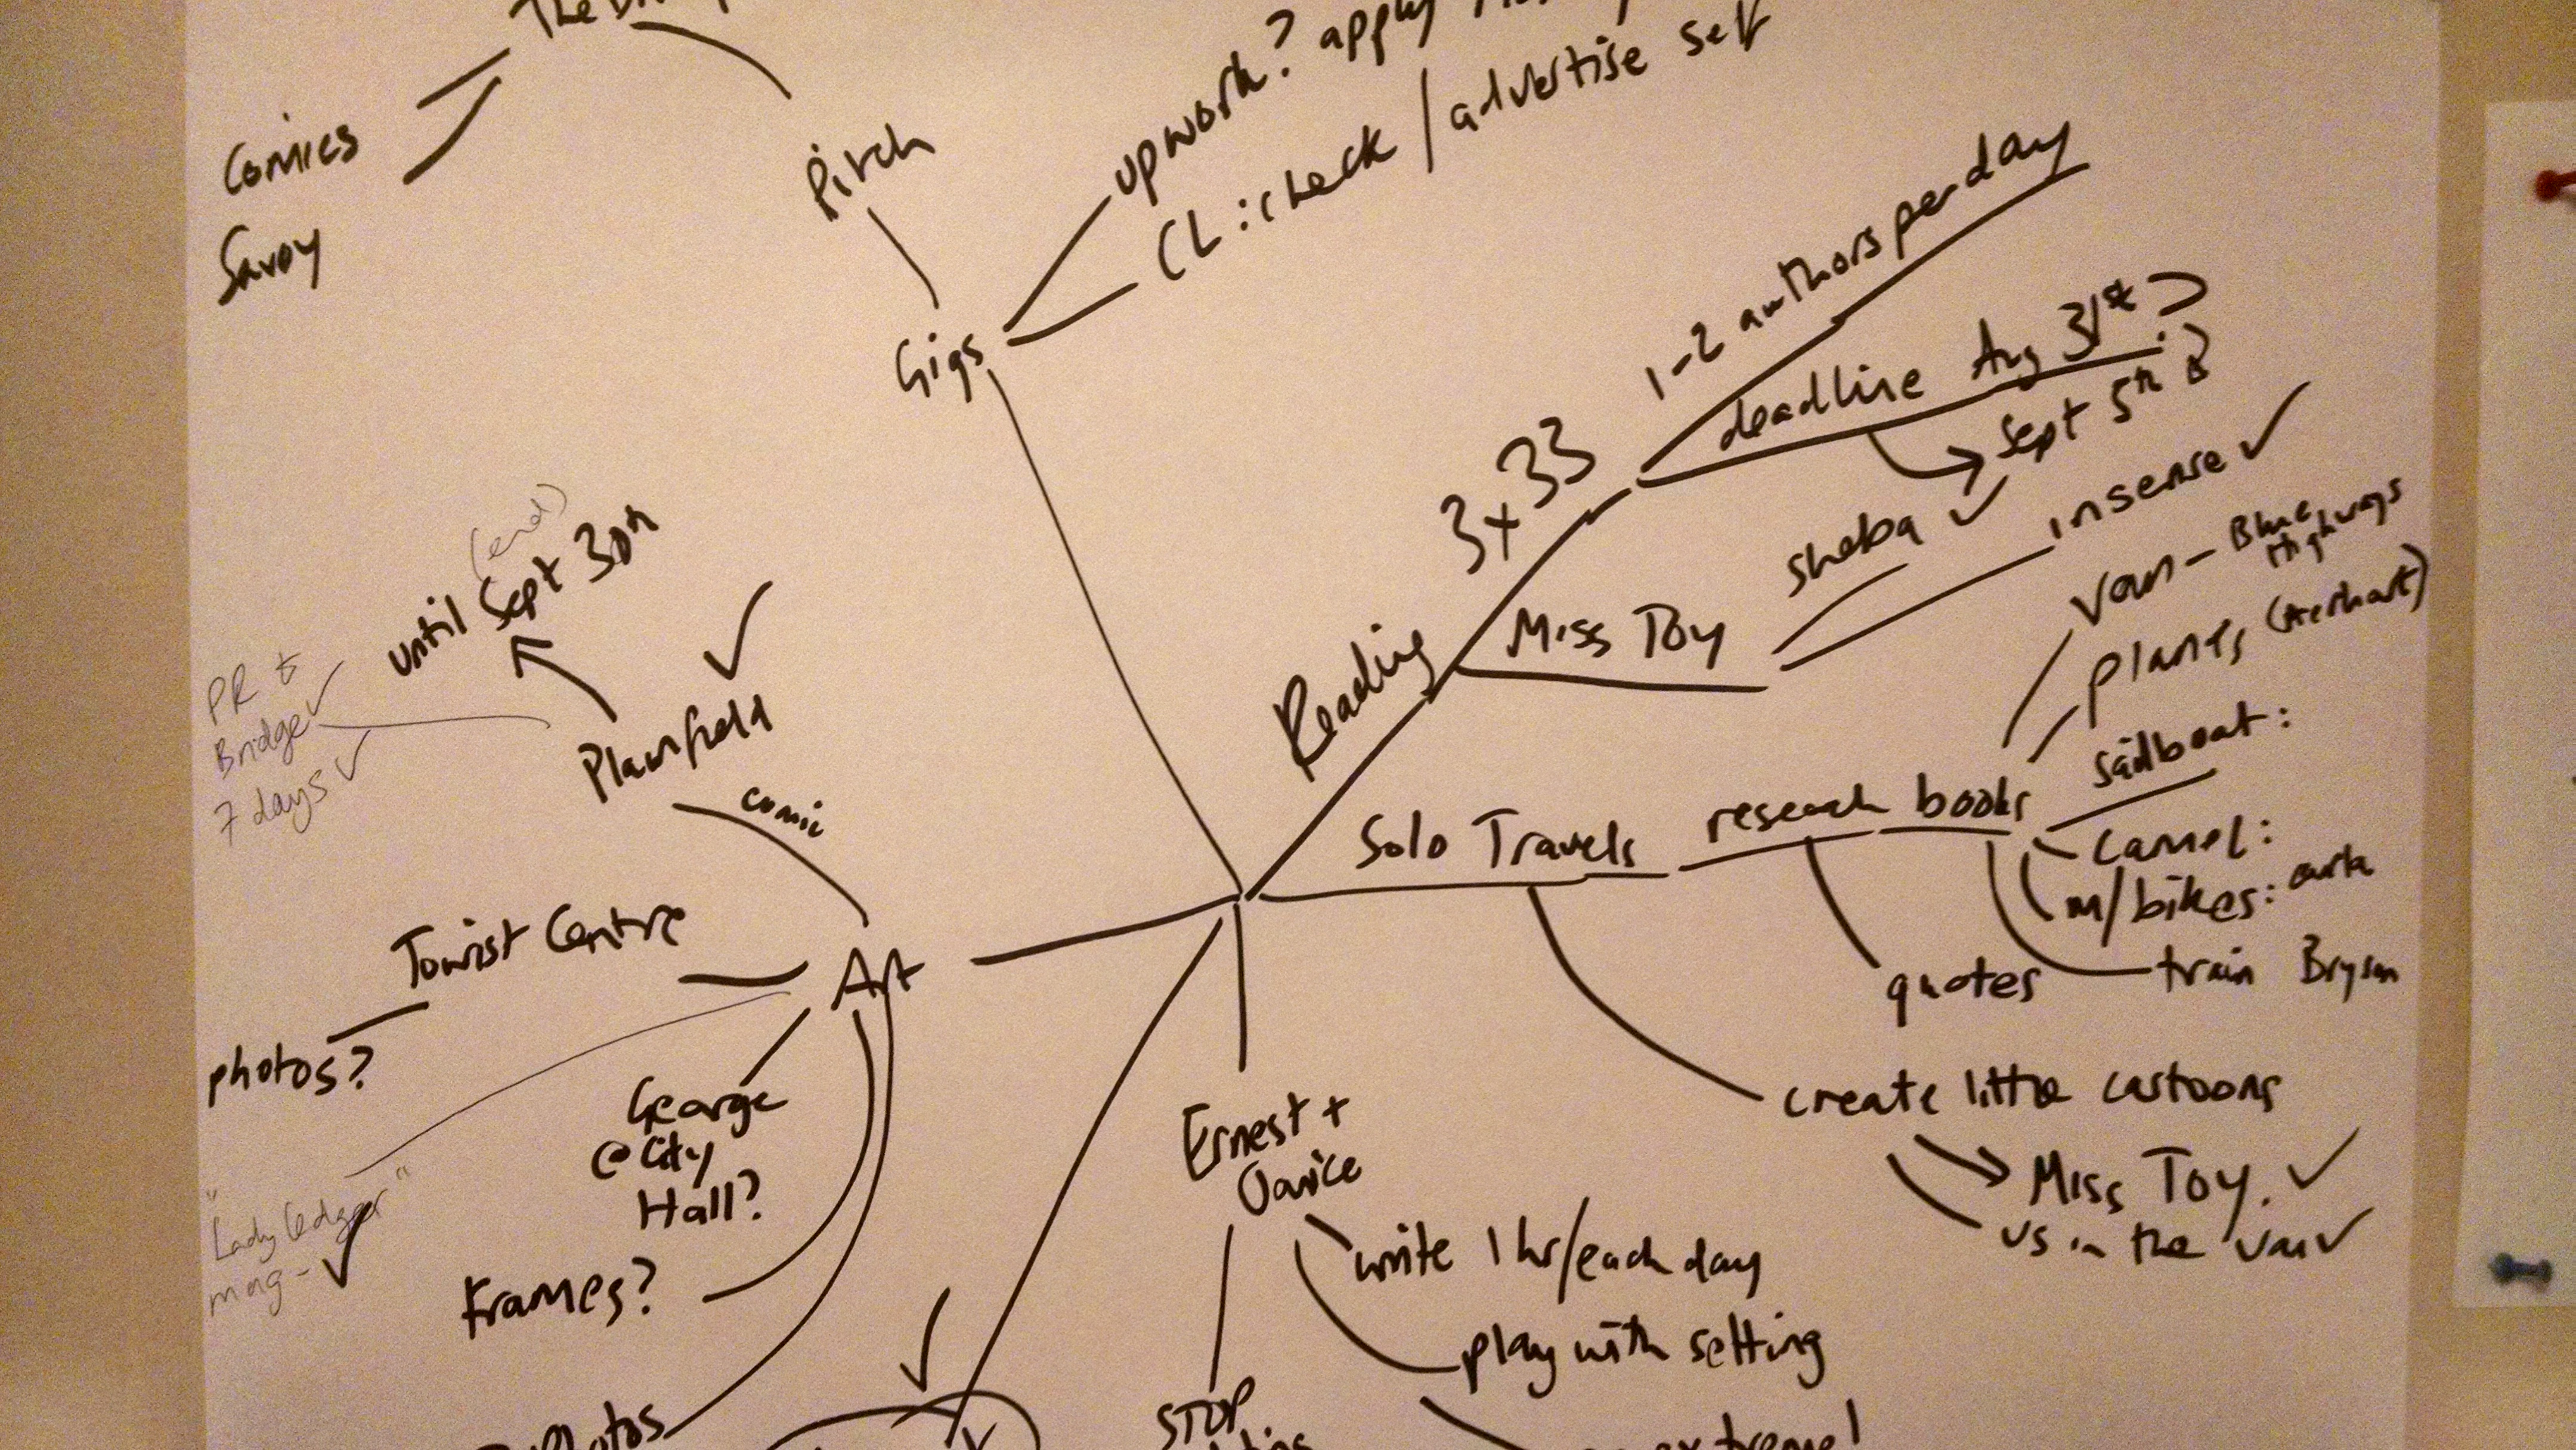 upwork? apply
CL: check / advertise self
Comics
Savoy
Pitch
Gigs
1-2 authors per day
deadline Aug 31st?
Sept 5th
3x33
Reading
Miss Toy
sheba ✓
insense ✓
van - Blue
Highways
planes
sailboat:
Solo Travels
research books
camel:
m/bikes:
train Bryson
quotes
create little cartoons
Miss Toy. ✓
us in the van ✓
(end)
until Sept 30th
PR +
Bridge ✓
7 days ✓
Plainfield ✓
comic
Tourist Centre
photos?
Art
George
@ City
Hall?
"Lady Ledger"
mag - ✓
Frames?
Photos
Ernest +
write 1 hr/each day
play with setting
STOP
extreme!